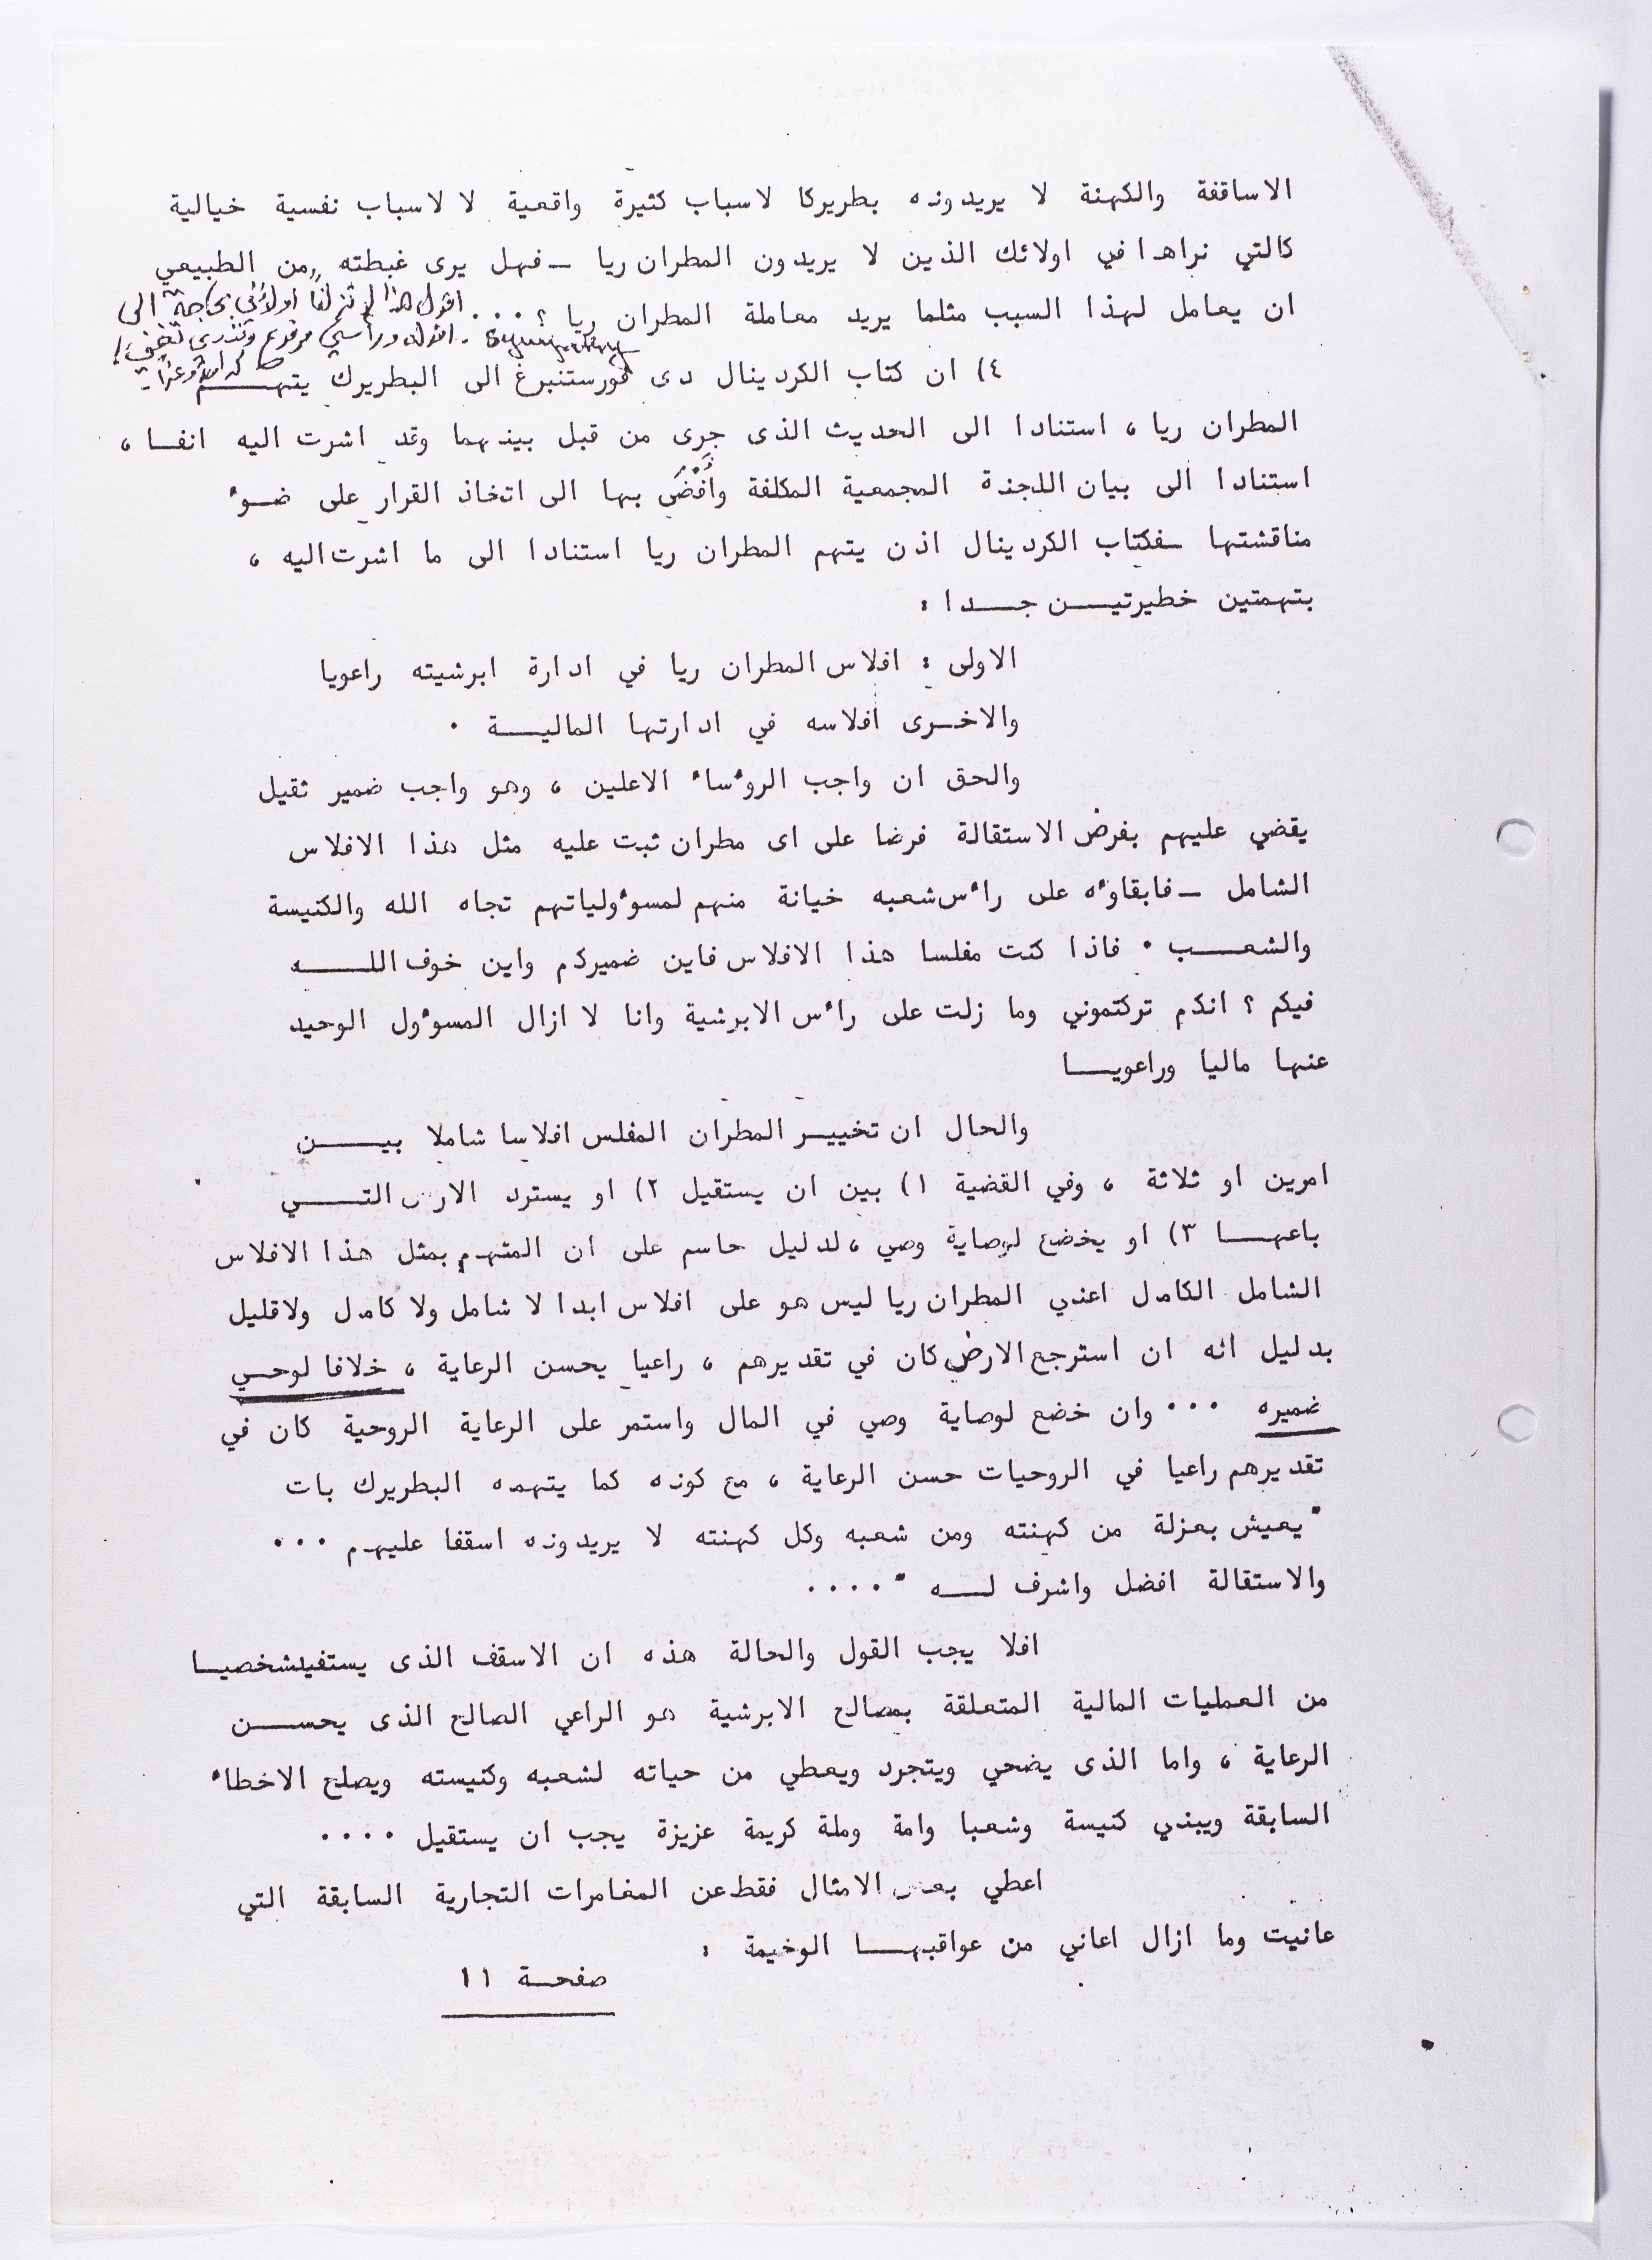 الاساقفة والكهنة لا يريدونه بطريركا لاسباب كثيرة واقعية لا لاسباب نفسية خيالية
كالتي نراها في اولائك الذين لا يريدون المطران ريا ــ فهل يرى غبطته "من الطبيعي"
ان يعامل لهذا السبب مثلما يريد معاملة المطران ريا ؟ ... اقول هذا بحاجة الى
sympathy
٤) ان كتاب الكردينال دى فورستنبرغ الى البطريرك يتهــــم
المطران ريا ، استنادا الى الحديث الذى جرى من قبل بينهما وقد اشرت اليه انفــا ،
استنادا الى بيان اللجنة المجمعية المكلفة وأفضى بها الى اتخاذ القرار على ضــوء
مناقشتها ــ فكتاب الكردينال اذن يتهم المطران ريا استنادا الى ما اشرت اليه ،
بتهمتين خطيرتيـــن جــــدا :
الاولى : افلاس المطران ريا في ادارة ابرشيته راعويا
والاخــرى افلاسه في ادارتها الماليـــة .
والحق ان واجب الروءساء الاعلين ، وهو واجب ضمير ثقيل
يقضي عليهم بفرض الاستقالة فرضا على اى مطران ثبت عليه مثل هذا الافلاس
الشامل ــ فابقاوءه على راءس شعبه خيانة منهم لمسوءولياتهم تجاه الله والكنيسة
والشعـــــب . فاذا كنت مفلسا هذا الافلاس فاين ضميركم واين خوف اللـــــه
فيكم ؟ انكم تركتموني وما زلت على راءس الابرشية وانا لا ازال المسوءول الوحيد
عنها ماليا وراعويـــا
والحال ان تخييــر المطران المفلس افلاسا شاملا بيـــــن
امرين او ثلاثة ، وفي القضية ١) بين ان يستقيل ٢) او يسترد الارض التـــــي
باعهــــا ٣) او يخضع لوصاية وصي ، لدليل حاسم على ان المتهم بمثل هذا الافلاس
الشامل الكامل اعني المطران ريا ليس هو على افلاس ابدا لا شامل ولا كامل ولا قليل
بدليل انه ان استرجع الارض كان في تقديرهم ، راعيا يحسن الرعاية ، خلافا لوحــي
ضميره ... وان خضع لوصاية وصي في المال واستمر على الرعاية الروحية كان في
تقديرهم راعيا في الروحيات حسن الرعاية ، مع كونه كما يتهمه البطريرك بات
"يعيش بعزلة من كهنته ومن شعبه وكل كهنته لا يريدونه اسقفا عليهم ...
والاستقالة افضل واشرف لـــه " ....
افلا يجب القول والحالة هذه ان الاسقف الذى يستفيدشخصيــا
من العمليات المالية المتعلقة بمصالح الابرشية هو الراعي الصالح الذى يحســــن
الرعاية ، واما الذى يضحي ويتجرد ويعطي من حياته لشعبه وكنيسته ويصلح الاخطاء
السابقة ويبني كنيسة وشعبا وامة وملة كريمة عزيزة يجب ان يستقيل ....
اعطي بعض الامثال فقط عن المغامرات التجارية السابقة التي
عانيت وما ازال اعاني من عواقبهـــا الوخيمة :
صفحــة ١١